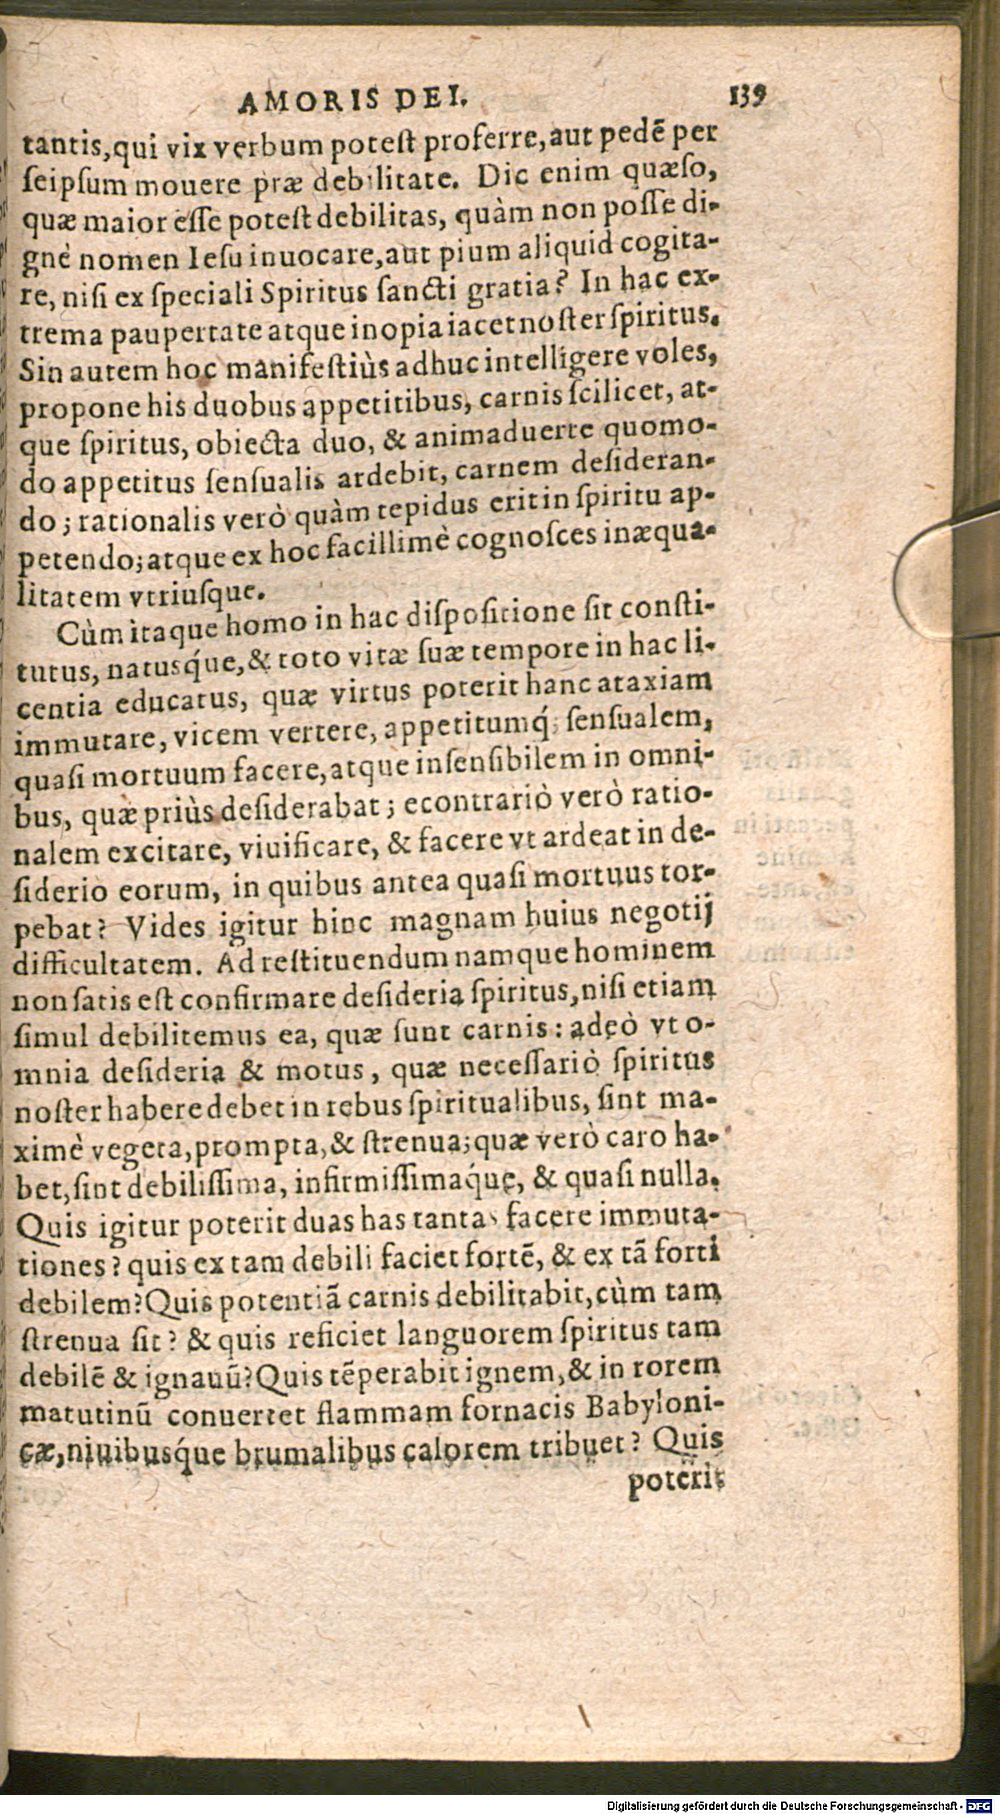 AMORIS DEI. 139
tantis, qui vix verbum poteſt proferre, aut pedē per
ſeipſum mouere præ debilitate. Dic enim quæſo,
quæ maior eſſe poteſt debilitas, quàm non poſſe di-
gnè nomen Ieſu inuocare, aut pium aliquid cogita-
re, niſi ex ſpeciali Spiritus ſancti gratia? In hac ex-
trema paupertate atque inopia iacet noſter ſpiritus.
Sin autem hoc manifeſtiùs adhuc intelligere voles,
propone his duobus appetitibus, carnis ſcilicet, at-
que ſpiritus, obiecta duo, & animaduerte quomo-
do appetitus ſenſualis ardebit, carnem deſideran-
do; rationalis verò quàm tepidus erit in ſpiritu ap-
petendo; atque ex hoc facillimè cognoſces inæqua-
litatem vtriuſque.
Cùm itaque homo in hac diſpoſitione ſit conſti-
tutus, natusq́ue, & toto vitæ ſuæ tempore in hac li-
centia educatus, quæ virtus poterit hanc ataxiam
immutare, vicem vertere, appetitumq́; ſenſualem,
quaſi mortuum facere, atque inſenſibilem in omni-
bus, quæ priùs deſiderabat; econtrariò verò ratio-
nalem excitare, viuificare, & facere vt ardeat in de-
ſiderio eorum, in quibus antea quaſi mortuus tor-
pebat? Vides igitur hinc magnam huius negotij
difficultatem. Ad reſtituendum namque hominem
non ſatis eſt confirmare deſideria ſpiritus, niſi etiam
ſimul debilitemus ea, quæ ſunt carnis: adeò vt o-
mnia deſideria & motus, quæ neceſſariò ſpiritus
noſter habere debet in rebus ſpiritualibus, ſint ma-
ximè vegeta, prompta, & ſtrenua; quæ verò caro ha-
bet, ſint debiliſſima, infirmiſſimaq́ue, & quaſi nulla.
Quis igitur poterit duas has tantas facere immuta-
tiones? quis ex tam debili faciet fortē, & ex tā forti
debilem? Quis potentiā carnis debilitabit, cùm tam
ſtrenua ſit? & quis reficiet languorem ſpiritus tam
debilē & ignauū? Quis tēperabit ignem, & in rorem
matutinū conuertet flammam fornacis Babyloni-
cæ, niuibusq́ue brumalibus calorem tribuet? Quis
poterit
Digitalisierung gefördert durch die Deutsche Forschungsgemeinschaft - DFG